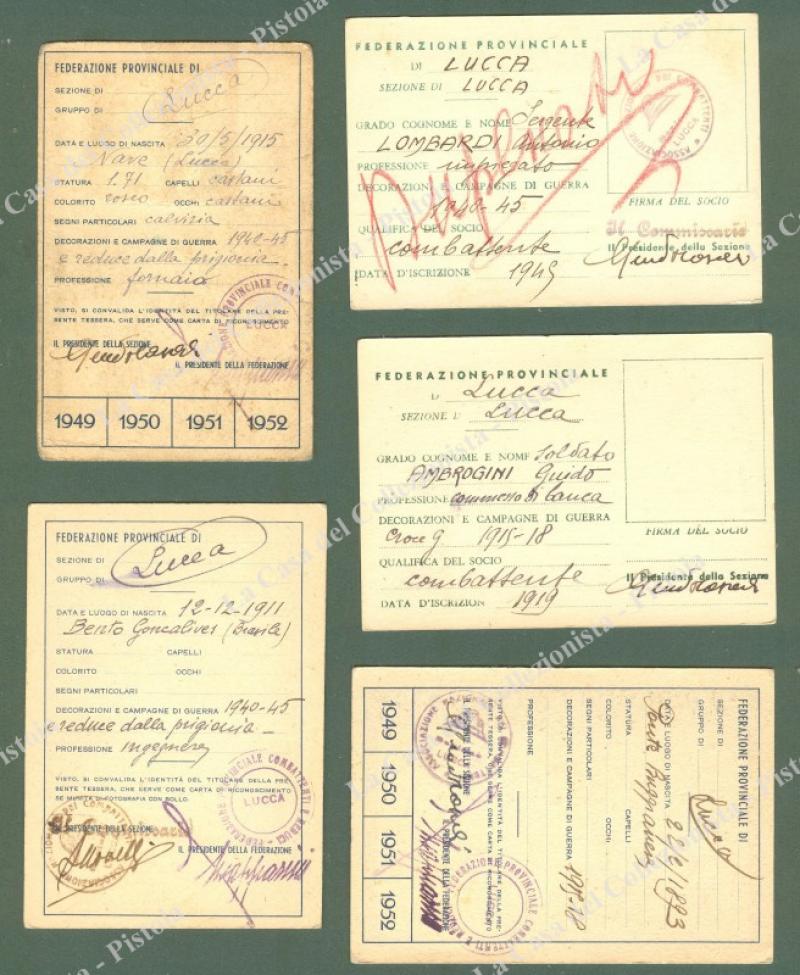 FEDERAZIONE PROVINCIALE DI
SEZIONE DI
GRUPPO DI
Lucca
DATA E LUOGO DI NASCITA 30/5/1915
Nave (Lucca)
STATURA 1.71 CAPELLI castani
COLORITO roseo OCCHI castani
SEGNI PARTICOLARI calvizia
DECORAZIONI E CAMPAGNE DI GUERRA 1940-45
e reduce dalla prigionia
PROFESSIONE fornaio
VISTO, SI CONVALIDA L'IDENTITÀ DEL TITOLARE DELLA PRE-
SENTE TESSERA, CHE SERVE COME CARTA DI RICONOSCIMENTO
IL PRESIDENTE DELLA SEZIONE
IL PRESIDENTE DELLA FEDERAZIONE
LUCCA
1949 1950 1951 1952
FEDERAZIONE PROVINCIALE
DI LUCCA
SEZIONE DI LUCCA
GRADO COGNOME E NOME Sergente
LOMBARDI Antonio
PROFESSIONE impiegato
DECORAZIONI E CAMPAGNE DI GUERRA
1940-45
QUALIFICA DEL SOCIO
combattente
DATA D'ISCRIZIONE 1945
FIRMA DEL SOCIO
Il Commissario
Il Presidente della Sezione
LUCCA
FEDERAZIONE PROVINCIALE
DI Lucca
SEZIONE DI Lucca
GRADO COGNOME E NOME Soldato
AMBROGINI Guido
PROFESSIONE commesso di banca
DECORAZIONI E CAMPAGNE DI GUERRA
Croce g 1915-18
QUALIFICA DEL SOCIO
combattente
DATA D'ISCRIZION 1919
FIRMA DEL SOCIO
Il Presidente della Sezione
FEDERAZIONE PROVINCIALE DI
SEZIONE DI
GRUPPO DI
Lucca
DATA E LUOGO DI NASCITA 12-12-1911
Bento Goncalives (Brasile)
STATURA CAPELLI
COLORITO OCCHI
SEGNI PARTICOLARI
DECORAZIONI E CAMPAGNE DI GUERRA 1940-45
e reduce dalla prigionia
PROFESSIONE Ingegnere
VISTO, SI CONVALIDA L'IDENTITÀ DEL TITOLARE DELLA PRE-
SENTE TESSERA, CHE SERVE COME CARTA DI RICONOSCIMENTO
SE MUNITA DI FOTOGRAFIA CON BOLLO.
IL PRESIDENTE DELLA SEZIONE
Il Commissario
IL PRESIDENTE DELLA FEDERAZIONE
LUCCA
FEDERAZIONE PROVINCIALE DI
SEZIONE DI
GRUPPO DI
Lucca
DATA E LUOGO DI NASCITA 22/2/1893
Ponte Buggianese
STATURA CAPELLI
COLORITO OCCHI
SEGNI PARTICOLARI
DECORAZIONI E CAMPAGNE DI GUERRA 1915-18
PROFESSIONE
VISTO, SI CONVALIDA L'IDENTITÀ DEL TITOLARE DELLA PRE-
SENTE TESSERA, CHE SERVE COME CARTA DI RICONOSCIMENTO
IL PRESIDENTE DELLA SEZIONE
IL PRESIDENTE DELLA FEDERAZIONE
1949 1950 1951 1952
La Casa del Collezionista - Pistoia